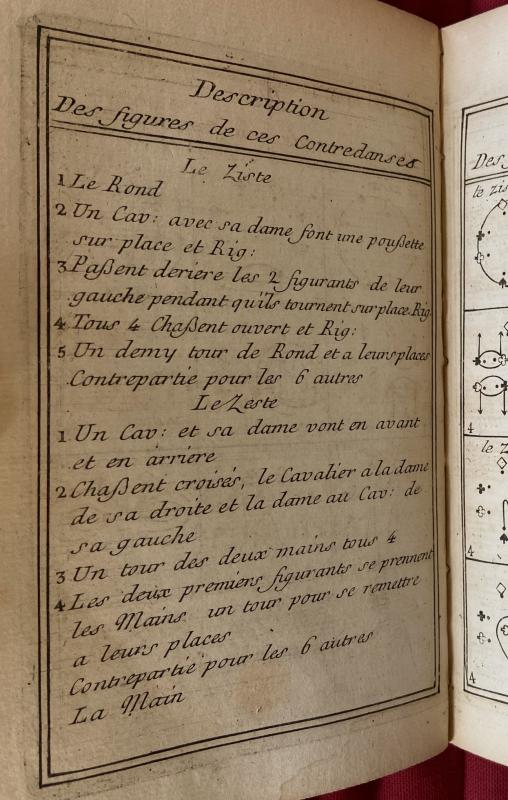 Description
Des figures de ces Contredanses
Le Ziste
1 Le Rond
2 Un Cav: avec sa dame font une poußette
sur place et Rig:
3 Paßent deriére les 2 figurants de leur
gauche pendant qu'ils tournent sur place. Rig.
4 Tous 4 Chaßent ouvert et Rig:
5 Un demy tour de Rond et a leurs places
Contrepartie pour les 6 autres
Le Zeste
1 Un Cav: et sa dame vont en avant
et en arriére
2 Chaßent croisés, le Cavalier a la dame
de sa droite et la dame au Cav: de
sa gauche
3 Un tour des deux mains tous 4
4 Les deux premiers figurants se prennent
les Mains un tour pour se remettre
a leurs places
Contrepartie pour les 6 autres
La Main
Des
le zis
4
le Z
4
4